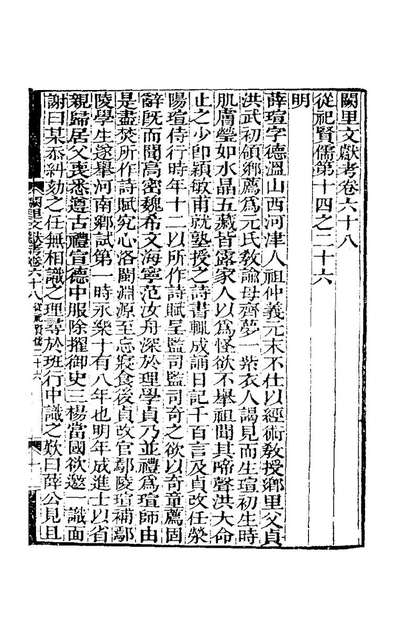 闕里文獻考卷六十八
從祀賢儒第十四之二十六
明
薛瑄字德溫山西河津人祖仲義元末不仕以經術教授鄉里父貞
洪武初領鄉薦爲元氏教諭母齊夢一紫衣人謁見而生瑄初生時
肌膚瑩如水晶五藏皆露家人以爲怪欲不舉祖聞其啼聲洪大命
止之少卽穎敏甫就塾授之詩書輒成誦日記千百言及貞改任滎
陽瑄侍行時年十二以所作詩賦呈監司監司奇之欲以奇童薦固
辭旣而聞高密魏希文海寧范汝舟深於理學貞乃並禮爲瑄師由
是盡焚所作詩賦究心洛閩淵源至忘寢食後貞改官鄢陵瑄補鄢
陵學生遂舉河南鄉試第一時永樂十有八年也明年成進士以省
親歸居父喪悉遵古禮宣德中服除擢御史三楊當國欲邀一識面
謝曰某忝糾劾之任無相識之理尋於班行中識之歎曰薛公見且
闕里文獻考卷六十八 從祀賢儒二十六 一